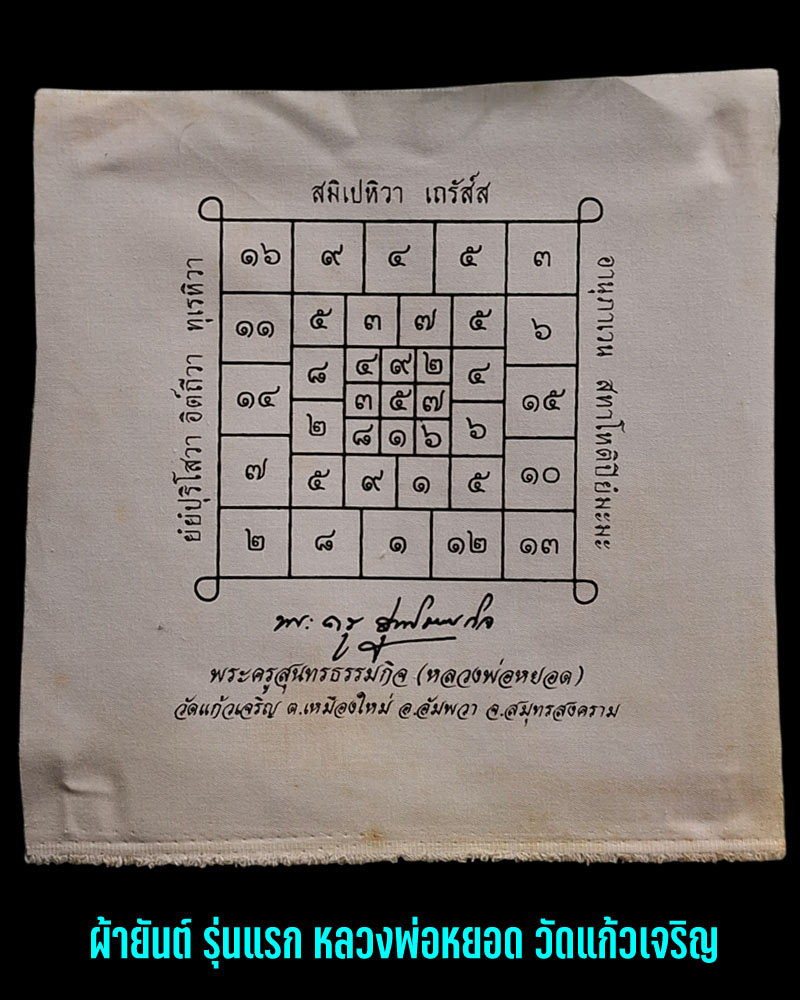 สมิเปหิวา เถรัส์ส
ยํยํปุริโสวา อิต์ถีวา ทุเรหิวา
อานุภาเวน สทาโหติปิยํมะมะ
๑๖ ๙ ๔ ๕ ๓
๑๑ ๕ ๓ ๗ ๕ ๖
๘ ๔ ๙ ๒ ๔
๑๔ ๓ ๕ ๗ ๑๕
๒ ๘ ๑ ๖ ๖
๗ ๕ ๙ ๑ ๕ ๑๐
๒ ๘ ๑ ๑๒ ๑๓
พระครูสุนทรธรรมกิจ (หลวงพ่อหยอด)
วัดแก้วเจริญ ต.เหมืองใหม่ อ.อัมพวา จ.สมุทรสงคราม
ผ้ายันต์ รุ่นแรก หลวงพ่อหยอด วัดแก้วเจริญ